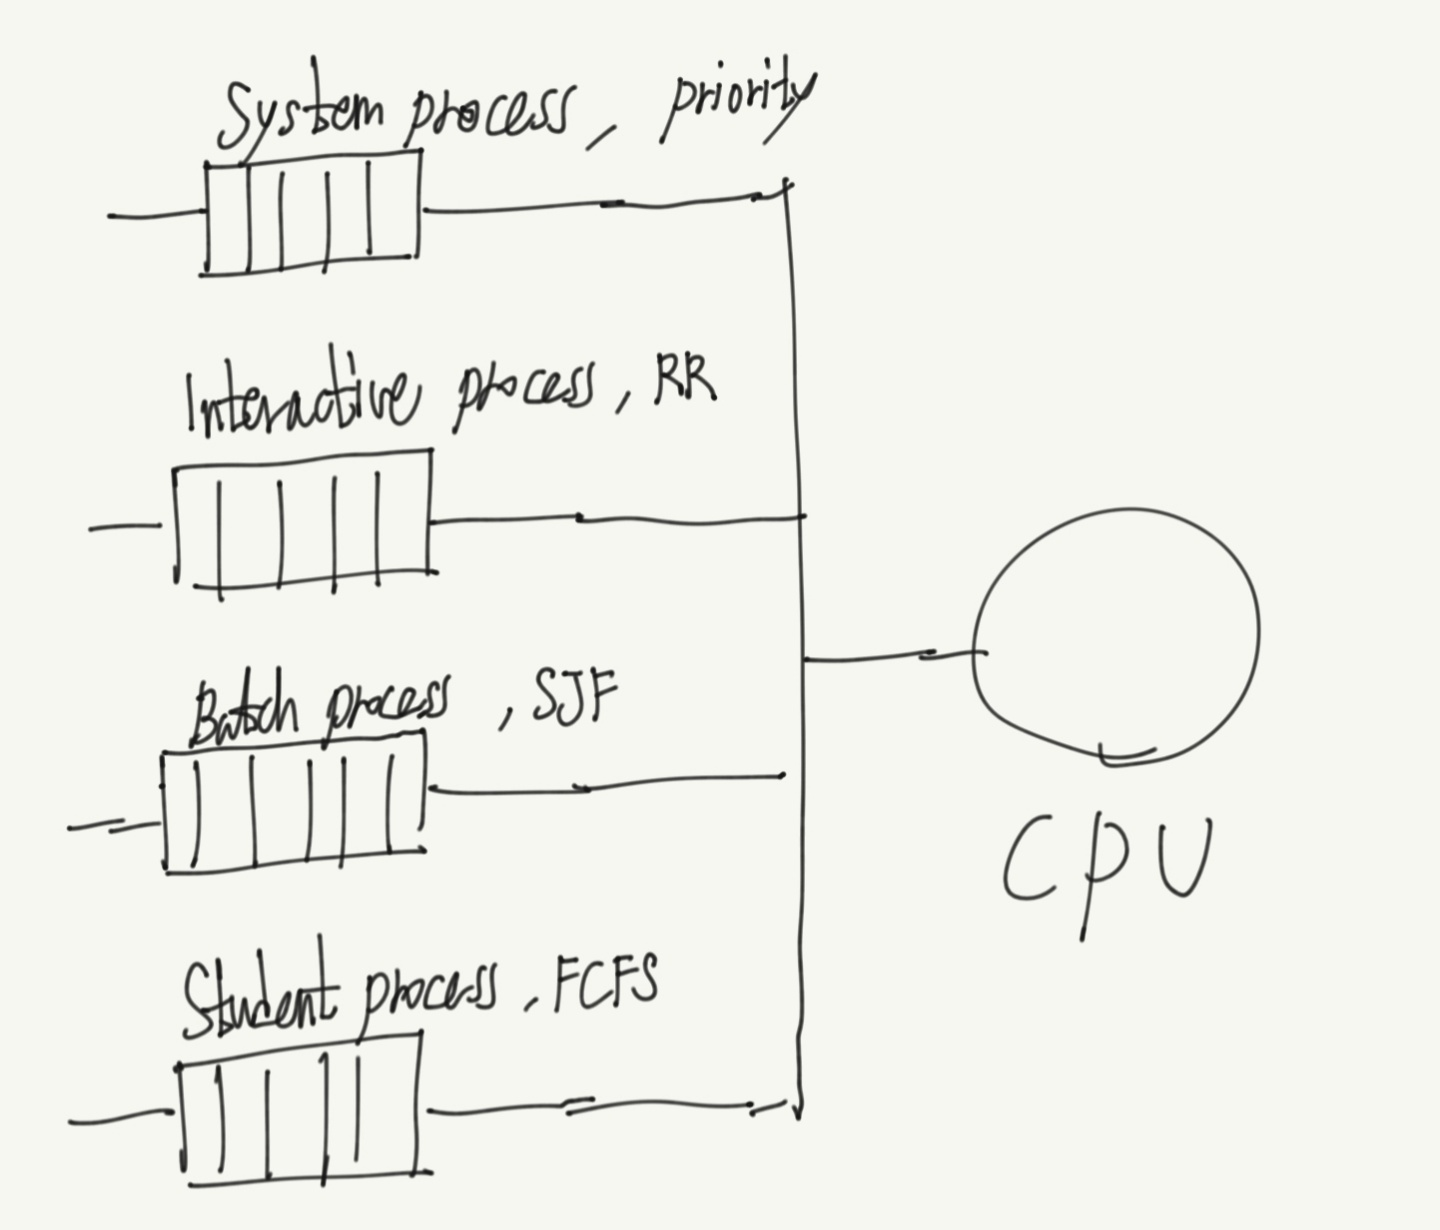 System process, priority
Interactive process, RR
Batch process, SJF
Student process, FCFS
CPU